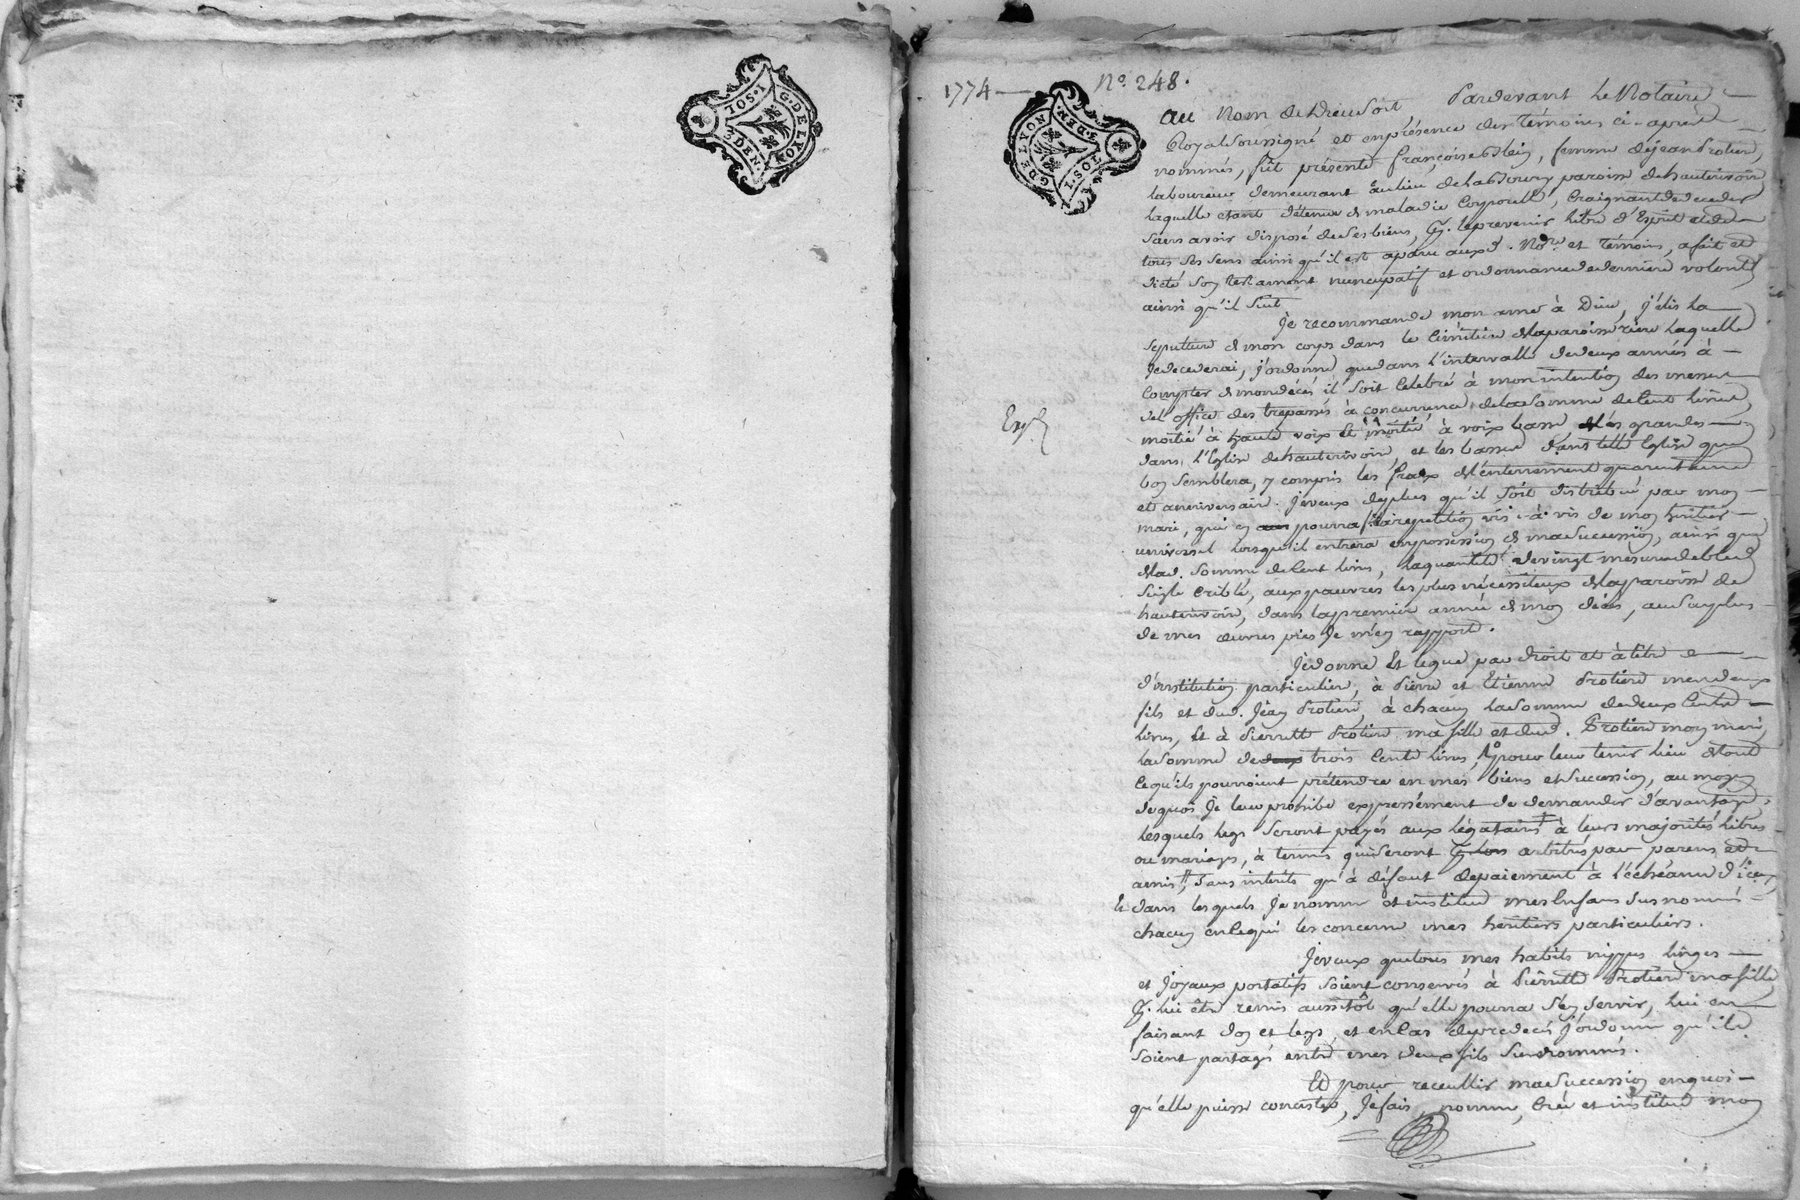 G. DE LYON
1. SOL
3. DEN.
1774 — No. 248.
G. DE LYON
3. DEN.
1. SOL
Au Nom de Dieu soit Pardevant le Notaire
Royal soussigné et en présence des témoins ci-après
nommés, fût présente françoise femme de jean Protiere,
laboureur demeurant au lieu de paroisse de hauterivoire
laquelle etant détenue de maladie Corporelle, Craignant de deceder
sans avoir disposé de ses biens, libre d'Esprit et de
tous ses sens ainsi qu'il est aparu auxd. No.re et témoins, a fait et
dicté son testament nuncupatif et ordonnance de derniere volonté
ainsi qu'il suit
Je recommande mon ame à Dieu, j'élis la
sepulture de mon corps dans le Cimétiere de la paroisse riere laquelle
je decederai, j'ordonne que dans l'intervalle de deux années à
Compter de mon décès il soit Célébré à mon intention des messes
de l'office des trépassés à concurrence de la somme de Cent livres
moitié à haute voix Et moitié à voix basse, les grandes
dans l'Eglise de hauterivoire, et les basses dans telle Eglise que
bon semblera, y compris les fraix d'enterrement quarantaine
et anniversaire. je veux de plus qu'il soit distribué par mon
mari, qui en pourra faire repetition vis-à-vis de mon héritier
universel lorsqu'il entrera en possession de ma succession, ainsi que
de lad. somme de Cent livres, la quantité de vingt mesures de bled
seigle Criblé, aux pauvres les plus nécessiteux de la paroisse de
hauterivoire, dans la premiere année de mon décès, au surplus
de mes œuvres pies je m'en rapporte.
Exp.
Je donne Et legue par droit et à titre
d'institution particuliere, à Pierre et Etienne Protiere mes deux
fils et dud. Jean Protiere, à chacun la somme de deux Cents
livres, Et à Pierrette Protiere ma fille et dud. Protiere mon mari,
la somme de trois Cents livres, pour leur tenir lieu de tout
ce qu'ils pourroient prétendre en mes biens et succession, au moyen
de quoi je leur prohibe expressément de demander d'avantage,
lesquels legs seront payés aux légataires à leurs majorités libres
ou mariage, à termes qui seront arbitrés par parens et
amis, sans interêts qu'à défaut de paiement à l'échéance d'iceux,
Et dans lesquels je nomme et institue mes Enfans susnommés
chacun en ce qui les concerne mes héritiers particuliers.
Je veux que tous mes habits nippes linges
et joyaux portatifs soient conservés à Pierrette Protiere ma fille
lui être remis aussitôt qu'elle pourra s'en servir, lui en
faisant don et legs, et en Cas de predecès j'ordonne qu'ils
soient partagés entre mes deux fils susnommés.
Et pour recueillir ma succession en quoi
qu'elle puisse consister, je fais, nomme, Crée et institue mon